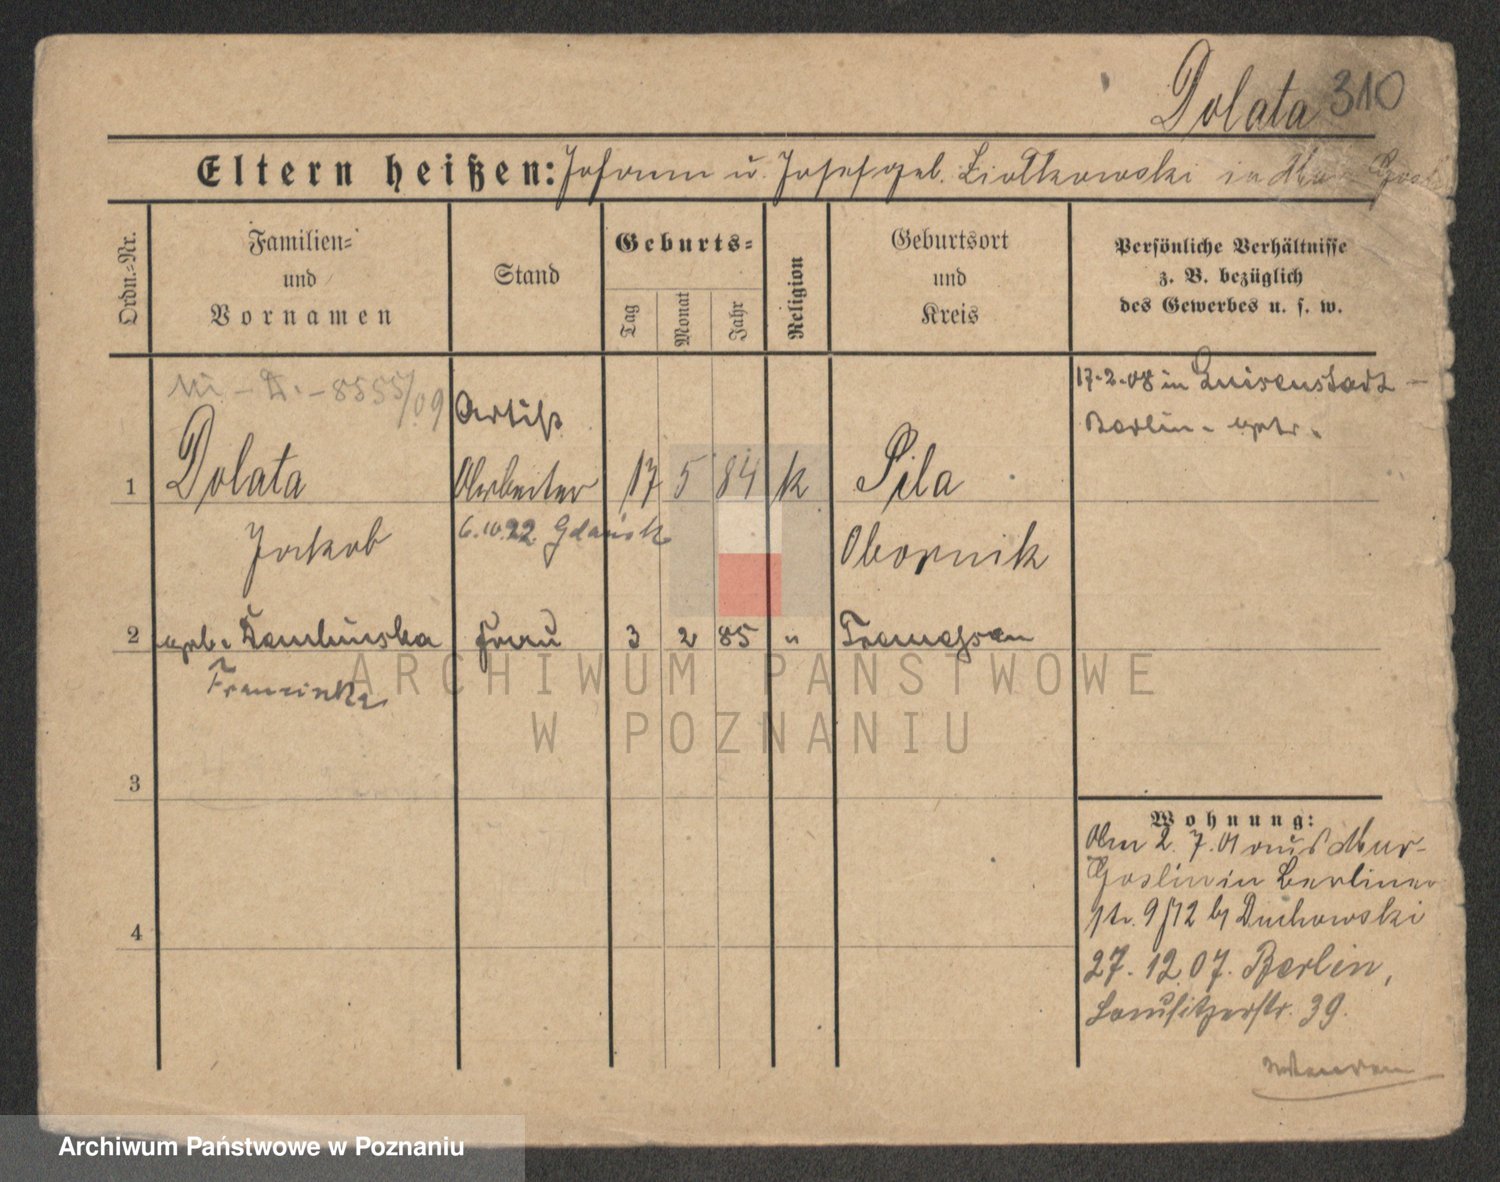 Dolata 310
Eltern heißen: Johann u. Josefa geb. Ziolkowski in Mur. Gosl
Ordn.=Nr.
Familien=
und
Vornamen
Stand
Geburts=
Tag
Monat
Jahr
Religion
Geburtsort
und
Kreis
Persönliche Verhältnisse
z. B. bezüglich
des Gewerbes u. s. w.
8555/09
Artist
17-2-08 in Luisenstadt -
Berlin - getr.
1 Dolata Arbeiter 17 5 84 k Pila
Jakob 6.10.22 Gdańsk Obornik
2 geb. Dembinska Frau 3 2 85 " Tremessen
Franziska
3
4
Wohnung:
Am 2. 7. 01 aus Mur-
Goslin in Berliner
str. 9/12 b/ Duchowski
27. 12 07. Berlin,
Lausitzerstr. 39.
ARCHIWUM PAŃSTWOWE
W POZNANIU
Archiwum Państwowe w Poznaniu